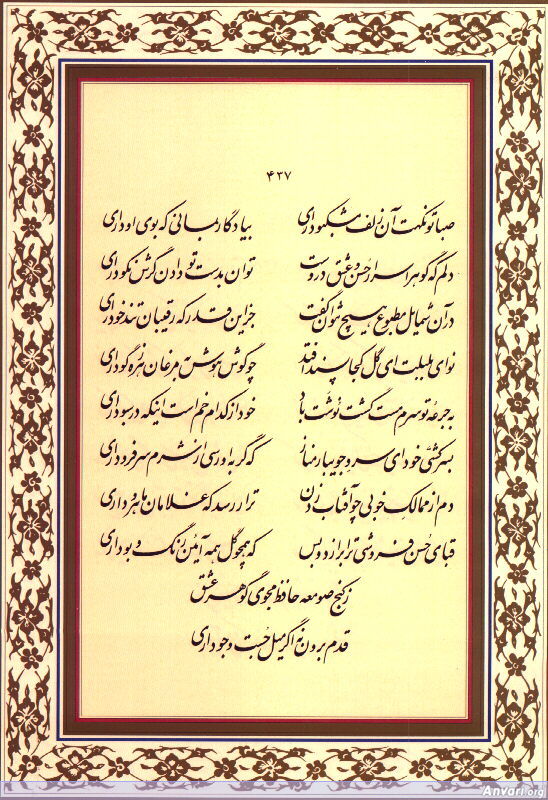 ۴۳۷
صبا تو نکهت آن زلف مشکبو داری بیادگار بمانی که بوی او داری
دلم که گوهر اسرار حسن و عشق دروست توان بدست تو دادن گرش نکو داری
در آن شمایل مطبوع هیچ نتوان گفت جز این قدر که رقیبان تندخو داری
نوای بلبلت ای گل کجا پسند افتد چو گوش هوش به مرغان هرزه گو داری
به جرعه تو سرم مست گشت نوشت باد خود از کدام خم است اینکه در سبو داری
بسرکشی خود ای سرو جویبار مناز که گر به او رسی از شرم سر فرو داری
دم از ممالک خوبی چو آفتاب زدن ترا رسد که غلامان ماهرو داری
قبای حسن فروشی ترا برازد و بس که همچو گل همه آئین رنگ و بو داری
ز کنج صومعه حافظ مجوی گوهر عشق
قدم برون نه اگر میل جست و جو داری
Anvari.org